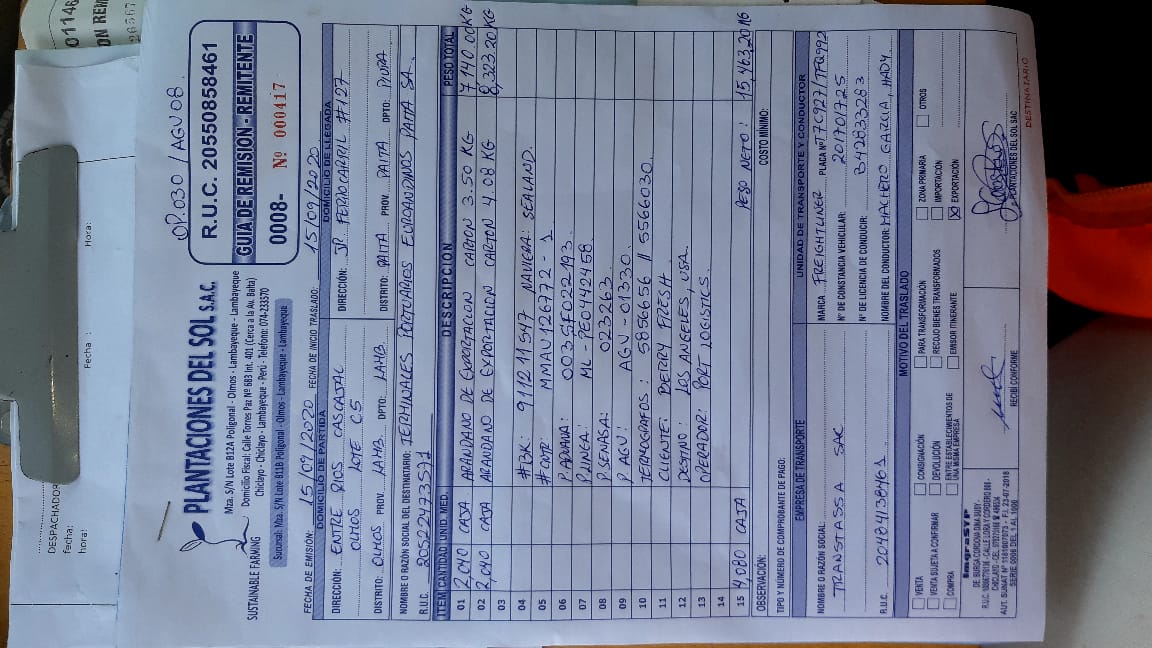 OP.030 / AGV08.
PLANTACIONES DEL SOL S.A.C.
SUSTAINABLE FARMING
Mza. S/N Lote B12A Poligonal - Olmos - Lambayeque - Lambayeque
Domicilio Fiscal: Calle Torres Paz Nº 683 Int. 401 (Cerca a la Av. Balta)
Chiclayo - Chiclayo - Lambayeque - Perú - Teléfono: 074-233570
Sucursal: Mza. S/N Lote B11B Poligonal - Olmos - Lambayeque - Lambayeque
R.U.C. 20550858461
GUIA DE REMISIÓN - REMITENTE
0008- Nº 000417
FECHA DE EMISIÓN: 15/09/2020 FECHA DE INICIO TRASLADO: 15/09/2020
DOMICILIO DE PARTIDA
DIRECCIÓN: ENTRE RIOS CASCAJAL
OLMOS LOTE C5
DISTRITO: OLMOS PROV. LAMB. DPTO: LAMB.
DOMICILIO DE LLEGADA
DIRECCIÓN: JR. FERROCARRIL #127
DISTRITO: PAITA PROV. PAITA DPTO: PIURA
NOMBRE O RAZÓN SOCIAL DEL DESTINATARIO: TERMINALES PORTUARIOS EUROANDINOS PAITA SA.
R.U.C. 20522473571
ITEM CANTIDAD UNID. MED. DESCRIPCION PESO TOTAL
01 2,040 CAJA ARANDANO DE EXPORTACION CARTON 3.50 KG 7,140.00KG
02 2,040 CAJA ARANDANO DE EXPORTACION CARTON 4.08 KG 8,323.20KG
03
04 #BK: 911211547 NAVIERA: SEALAND.
05 #CONT: MMAU126772-1
06 P.ADUANA: 003SF022193.
07 P.LINEA: ML-PE0442458
08 P.SENASA: 023263
09 P.AGV: AGV-01330
10 TERMOGRAFOS: 5856656 // 5566030
11 CLIENTE: BERRY FRESH
12 DESTINO: LOS ANGELES, USA
13 OPERADOR: PORT LOGISTICS.
14
15 4,080 CAJA PESO NETO: 15,463.20KG
OBSERVACIÓN:
TIPO Y NÚMERO DE COMPROBANTE DE PAGO: COSTO MÍNIMO:
EMPRESA DE TRANSPORTE
NOMBRE O RAZÓN SOCIAL:
TRANSTASSA SAC
R.U.C. 20484138461
UNIDAD DE TRANSPORTE Y CONDUCTOR
MARCA FREIGHTLINER PLACA Nº T7C927/TFQ992
Nº DE CONSTANCIA VEHICULAR: 201701725
Nº DE LICENCIA DE CONDUCIR: B42833283
NOMBRE DEL CONDUCTOR: MACHERO GARCIA, HADY.
MOTIVO DEL TRASLADO
VENTA
VENTA SUJETA A CONFIRMAR
COMPRA
CONSIGNACIÓN
DEVOLUCIÓN
ENTRE ESTABLECIMIENTOS DE UNA MISMA EMPRESA
PARA TRANSFORMACIÓN
RECOJO BIENES TRANSFORMADOS
EMISOR ITINERANTE
ZONA PRIMARIA
IMPORTACIÓN
X EXPORTACIÓN
OTROS
ImgraSYP
SERIE 0008 DEL 1 AL 1000
RECIBÍ CONFORME
PLANTACIONES DEL SOL SAC
DESTINATARIO
DESPACHADOR
fecha:
hora:
Fecha :
Hora: